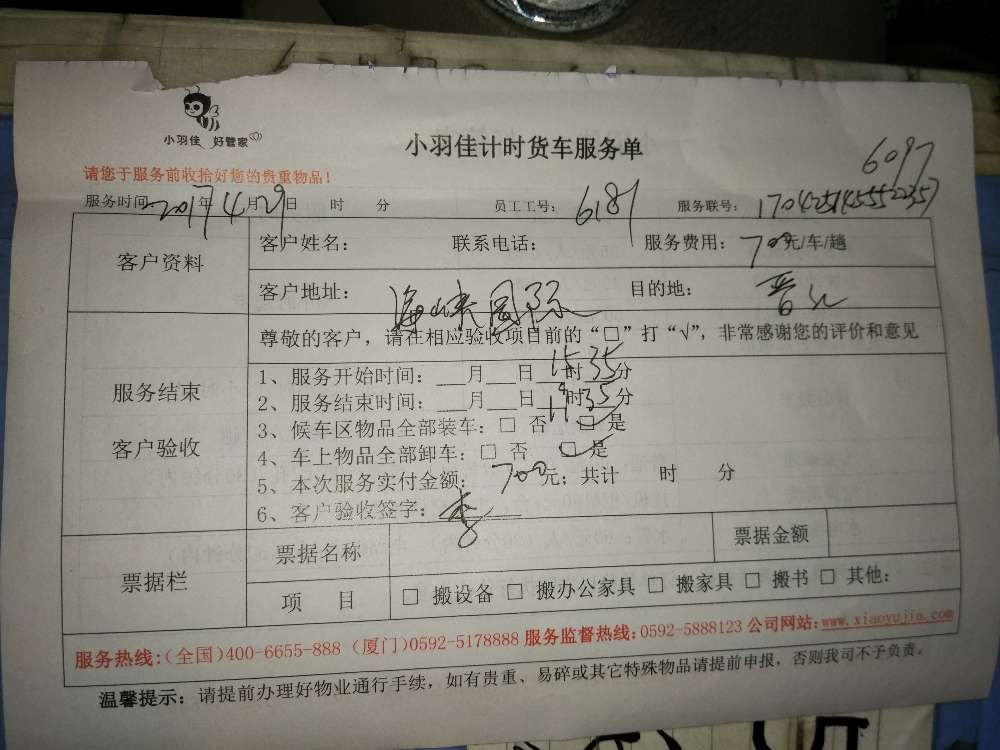 小羽佳 好管家
小羽佳计时货车服务单
6097
请您于服务前收拾好您的贵重物品！
服务时间 2017年4月29日 时 分 员工工号：6187 服务联号：
客户资料
客户姓名： 联系电话： 服务费用：700元/车/趟
客户地址：海峡国际 目的地：晋江
尊敬的客户，请在相应验收项目前的“□”打“√”，非常感谢您的评价和意见
服务结束
客户验收
1、服务开始时间：___月___日 15时35分
2、服务结束时间：___月___日 19时35分
3、候车区物品全部装车：□ 否 ☑ 是
4、车上物品全部卸车：□ 否 ☑ 是
5、本次服务实付金额：700元；共计 时 分
6、客户验收签字：李
票据栏
票据名称 票据金额
项 目 □ 搬设备 □ 搬办公家具 □ 搬家具 □ 搬书 □ 其他：
服务热线:(全国)400-6655-888 (厦门)0592-5178888 服务监督热线:0592-5888123 公司网站:www.xiaoyujia.com
温馨提示：请提前办理好物业通行手续，如有贵重、易碎或其它特殊物品请提前申报，否则我司不予负责。